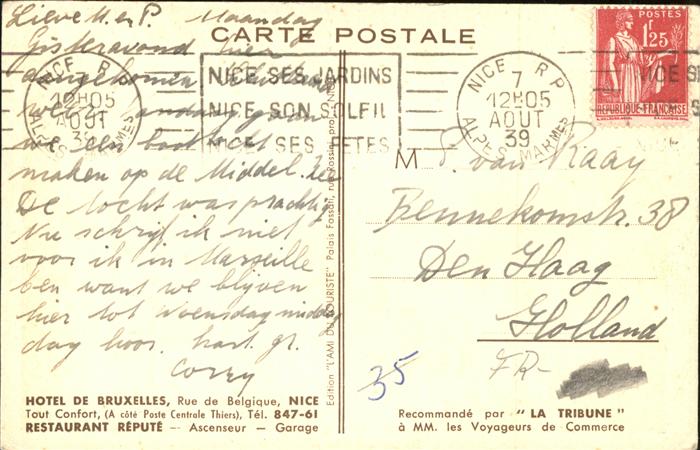 Lieve M. en P. Maandag
Gisteravond hier
aangekomen
we een boottocht
maken op de Middel. Zee
De tocht was prachtig
Nu schrijf ik niet
voor ik in Marseille
ben want we blijven
hier tot Woensdagmiddag
dag hoor. hart. gr.
Corry
CARTE POSTALE
NICE R.P.
12H05
AOUT
39
ALPES MARMES
NICE SES JARDINS
NICE SON SOLEIL
NICE SES FETES
NICE R P
7
12H05
AOUT
39
ALPES MARMES
POSTES
1F25
REPUBLIQUE FRANÇAISE
NICE SE
M. P. van Raay
Bennekomstr. 38
Den Haag
Holland
FR-
35
Edition "L'AMI DU TOURISTE" Palais Fossati, rue Rossini prol. NICE
HOTEL DE BRUXELLES, Rue de Belgique, NICE
Tout Confort, (A côté Poste Centrale Thiers), Tél. 847-61
RESTAURANT RÉPUTÉ - Ascenseur - Garage
Recommandé par "LA TRIBUNE"
à MM. les Voyageurs de Commerce